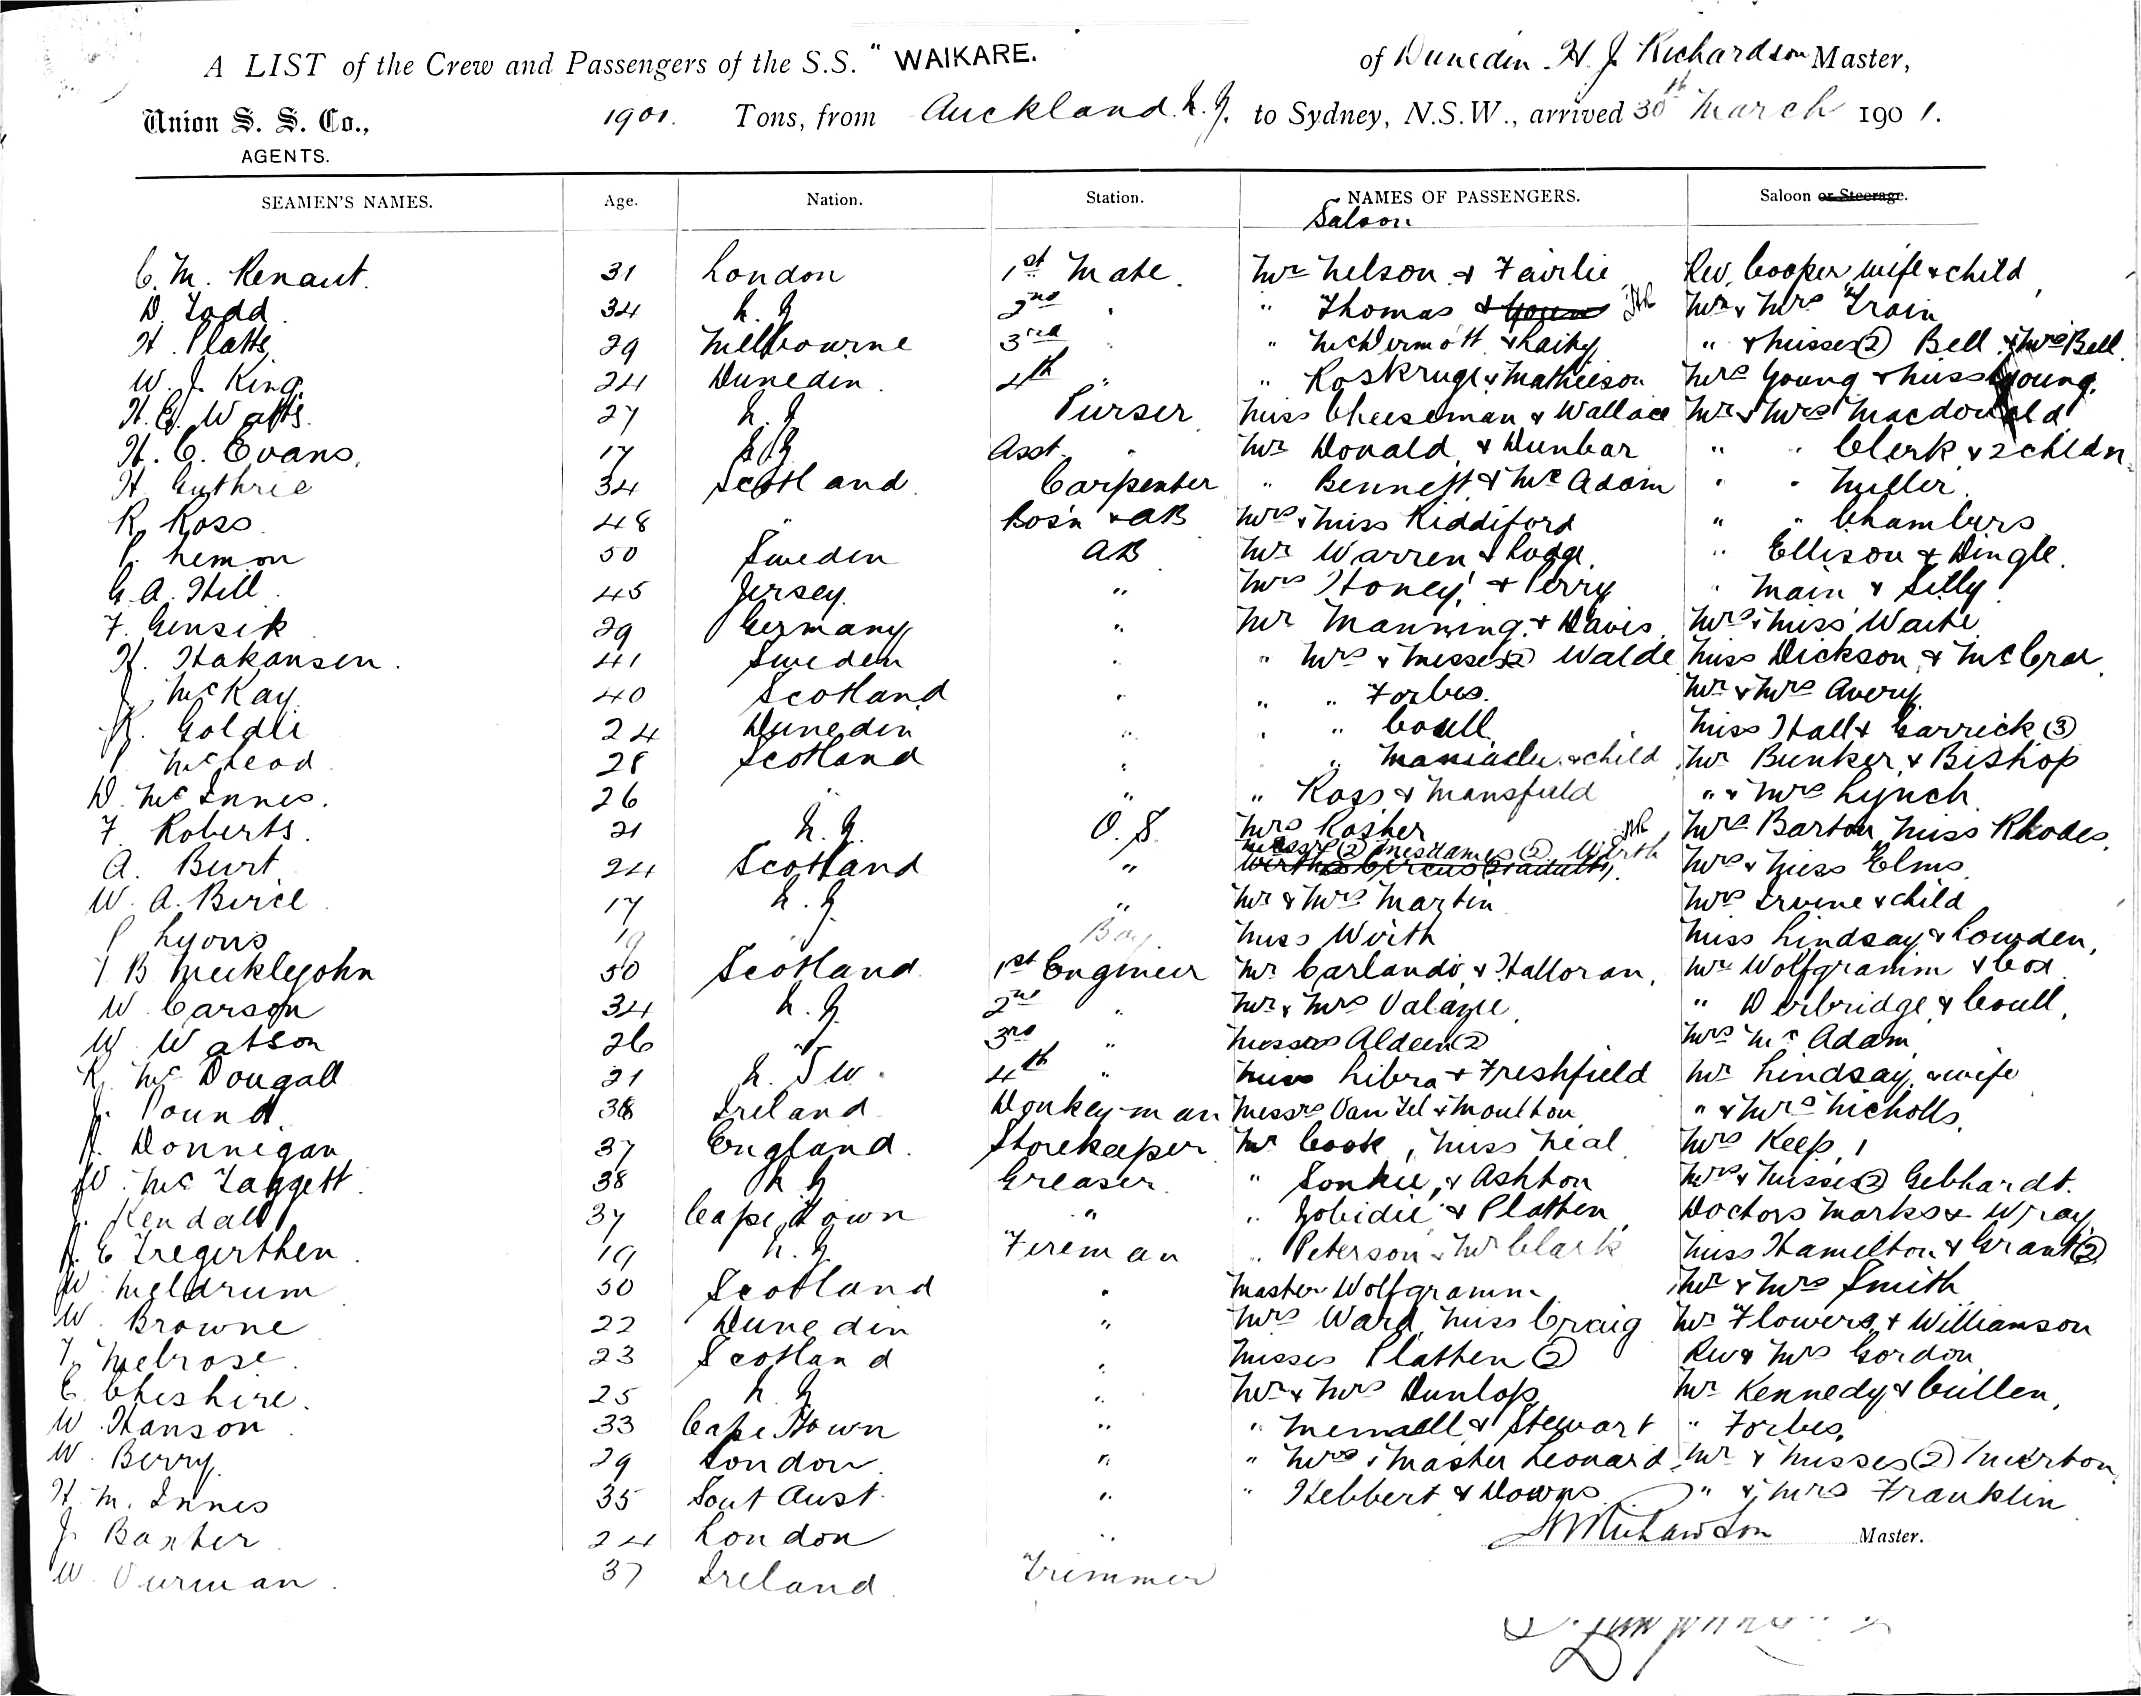 A LIST of the Crew and Passengers of the S.S. " WAIKARE. of Dunedin H. J. Richardson Master,
Union S. S. Co., 1901. Tons, from Auckland. N. Z. to Sydney, N.S.W., arrived 30th March 1901.
AGENTS.
SEAMEN'S NAMES. Age. Nation. Station. NAMES OF PASSENGERS. Saloon or Steerage.
Saloon
C. M. Renaut. 31 London 1st Mate. Mr Nelson & Fairlie Rev. Cooper, wife & child
D. Todd 34 N. Z 2nd " " Thomas & Young Mr & Mrs Train
H. Platts 29 Melbourne 3rd " " McDermott & " & Misses (2) Bell & Mrs Bell
W. J. King. 24 Dunedin. 4th " " Roskruge & Mathieson Mrs Young & Miss Young.
H. E. Watts. 27 N. Z Purser Miss Cheeseman & Wallace Mr & Mrs Macdonald
H. C. Evans. 17 N. Z Asst. " Mr Donald & Dunbar " " Clerk & 2 childn
H Guthrie 34 Scotland Carpenter " Bennett & McAdam " " Miller
R. Ross 48 " Bos'n & AB Mrs & Miss Riddiford " " Chambers
Lemon 50 Sweden AB Mr Warren & Lodge " Ellison & Dingle.
G. A. Hill 45 Jersey " Mrs Honey & Perry " Main & Lilly
F. Gensik 29 Germany " Mr Manning & Davis Mrs & Miss Waite
H. Hakansen. 41 Sweden " " Mrs & Misses (2) Walde Miss Dickson & McCrae
J. McKay 40 Scotland " " " Forbes. Mr & Mrs Avery
R. Goldie 24 Dunedin " " " Coull Miss Hall & Garrick (3)
McLeod 28 Scotland " " & child Mr Bunker & Bishop
D. McInnes. 26 " " " Ross & Mansfield " & Mrs Lynch
F. Roberts. 21 N. Z. O. S. Mrs Rosher Mrs Barton, Miss Rhodes.
Messrs (2) Mesdames (2) Wirth
A. Burt 24 Scotland " Wirths Circus Mrs & Miss Elms
W. A. Birce 17 N. Z. " Mr & Mrs Martin Mrs Irvine & child
Lyons 19 " Boy Miss Wirth Miss Lindsay & Lowden,
B Meiklejohn 50 Scotland 1st Engineer Mr Carlando & Halloran, Mr Wolfgramm & Cox
W. Carson 34 N. Z. 2nd " Mr & Mrs Valazie " Derbridge & Coull,
W. Watson 26 " 3rd " Messrs Aldeen (2) Mrs McAdam
R. McDougall 21 N. S W. 4th " Miss Libra & Freshfield Mr Lindsay & wife
J. Pound 38 Ireland Donkeyman Messrs Van Tel & Moulton " & Mrs Nicholls,
Donnegan 37 England. Storekeeper Mr Cook, Miss Neal Mrs Keep,
W. McTaggett 38 N. Z Greaser. " & Ashton Mrs & Misses (2) Gebhardt.
J. Kendall 37 Cape Town " " & Platten Doctors Marks & Wray
E Tregerthen 19 N. Z. Fireman " Peterson & Mr Clark Miss Hamelton & Grant (2)
W. Meldrum 50 Scotland " Master Wolfgramm Mr & Mrs Smith
W. Browne 22 Dunedin " Mrs Ward, Miss Craig Mr Flowers & Williamson
Melrose. 23 Scotland " Misses Platten (2) Rev & Mrs Gordon
C. Cheshire. 25 N. Z " Mr & Mrs Dunlop Mr Kennedy & Cullen,
W. Hanson 33 Cape Town " " & Stewart " Forbes,
W. Berry 29 London. " " Mrs & Master Leonard Mr & Misses (2)
H. M. Innes 35 Sout Aust. " " Hebbert & Downs " & Mrs Franklin
J. Baxter 24 London " H J Richardson Master.
W. 37 Ireland Trimmer